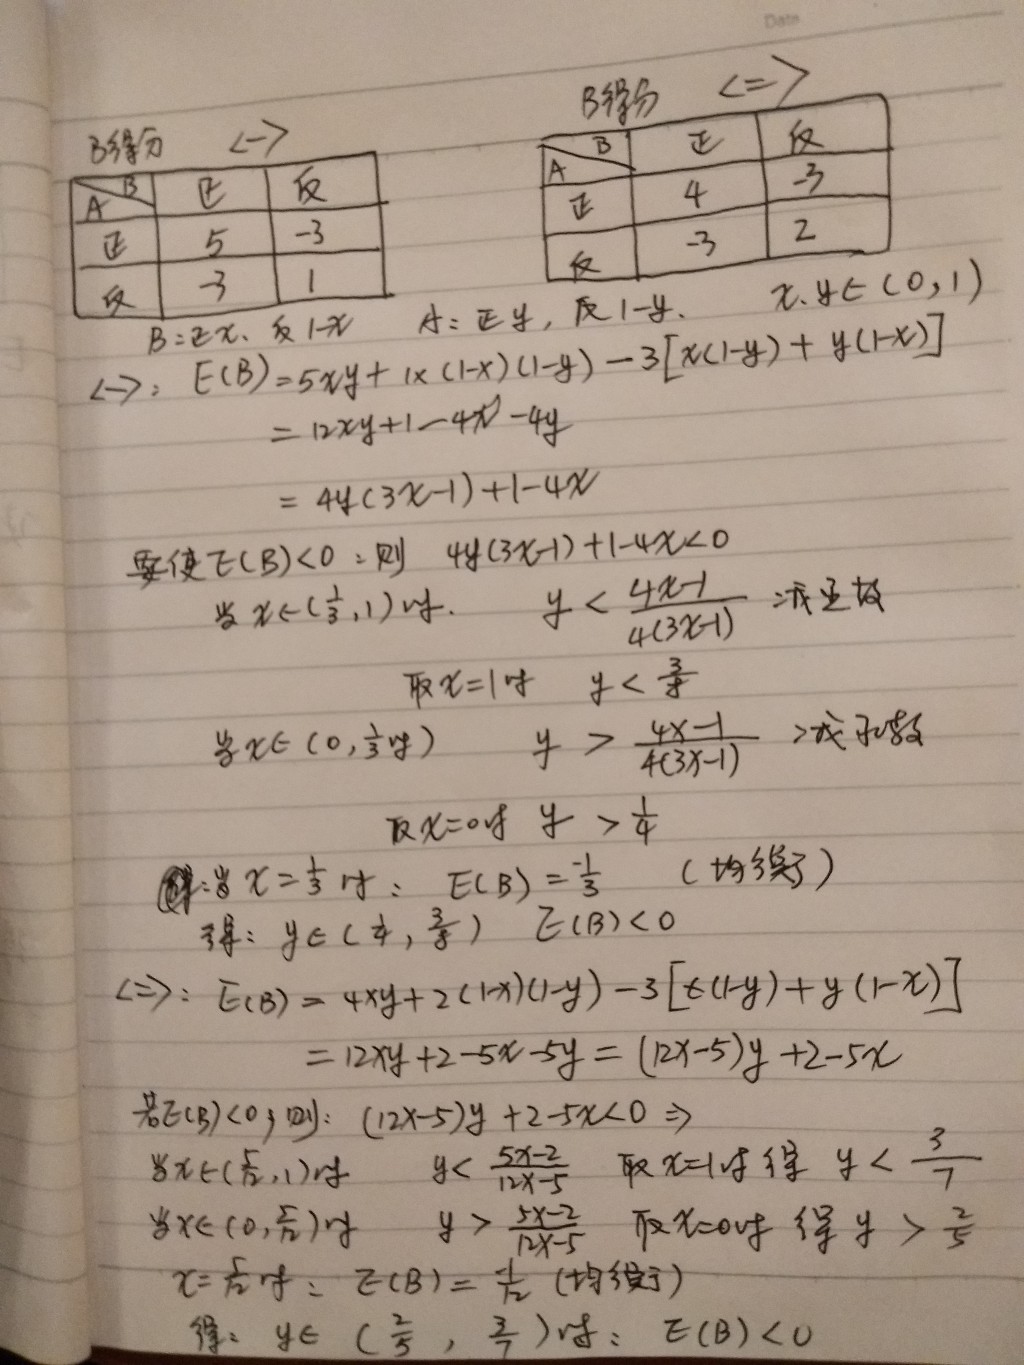 Date
B得分 <一>
B 正 反
A
正 5 -3
反 -3 1
B得分 <二>
B 正 反
A
正 4 -3
反 -3 2
B:正x、反1-x A:正y,反1-y. x.y∈(0,1)
<一>: E(B)=5xy+1×(1-x)(1-y)-3[x(1-y)+y(1-x)]
=12xy+1-4x-4y
=4y(3x-1)+1-4x
要使E(B)<0:则 4y(3x-1)+1-4x<0
当x∈(1/3,1)时. y<(4x-1)/(4(3x-1))
取x=1时 y<3/8
当x∈(0,1/3时) y>(4x-1)/(4(3x-1))
取x=0时 y>1/4
当x=1/3时: E(B)=-1/3
得: y∈(1/4,3/8) E(B)<0
<二>: E(B)=4xy+2(1-x)(1-y)-3[x(1-y)+y(1-x)]
=12xy+2-5x-5y=(12x-5)y+2-5x
若E(B)<0,则:(12x-5)y+2-5x<0⇒
当x∈(5/12,1)时 y<(5x-2)/(12x-5) 取x=1时得 y<3/7
当x∈(0,5/12)时 y>(5x-2)/(12x-5) 取x=0时得 y>2/5
x=5/12时: E(B)=-1/12
得: y∈(2/5,3/7)时: E(B)<0